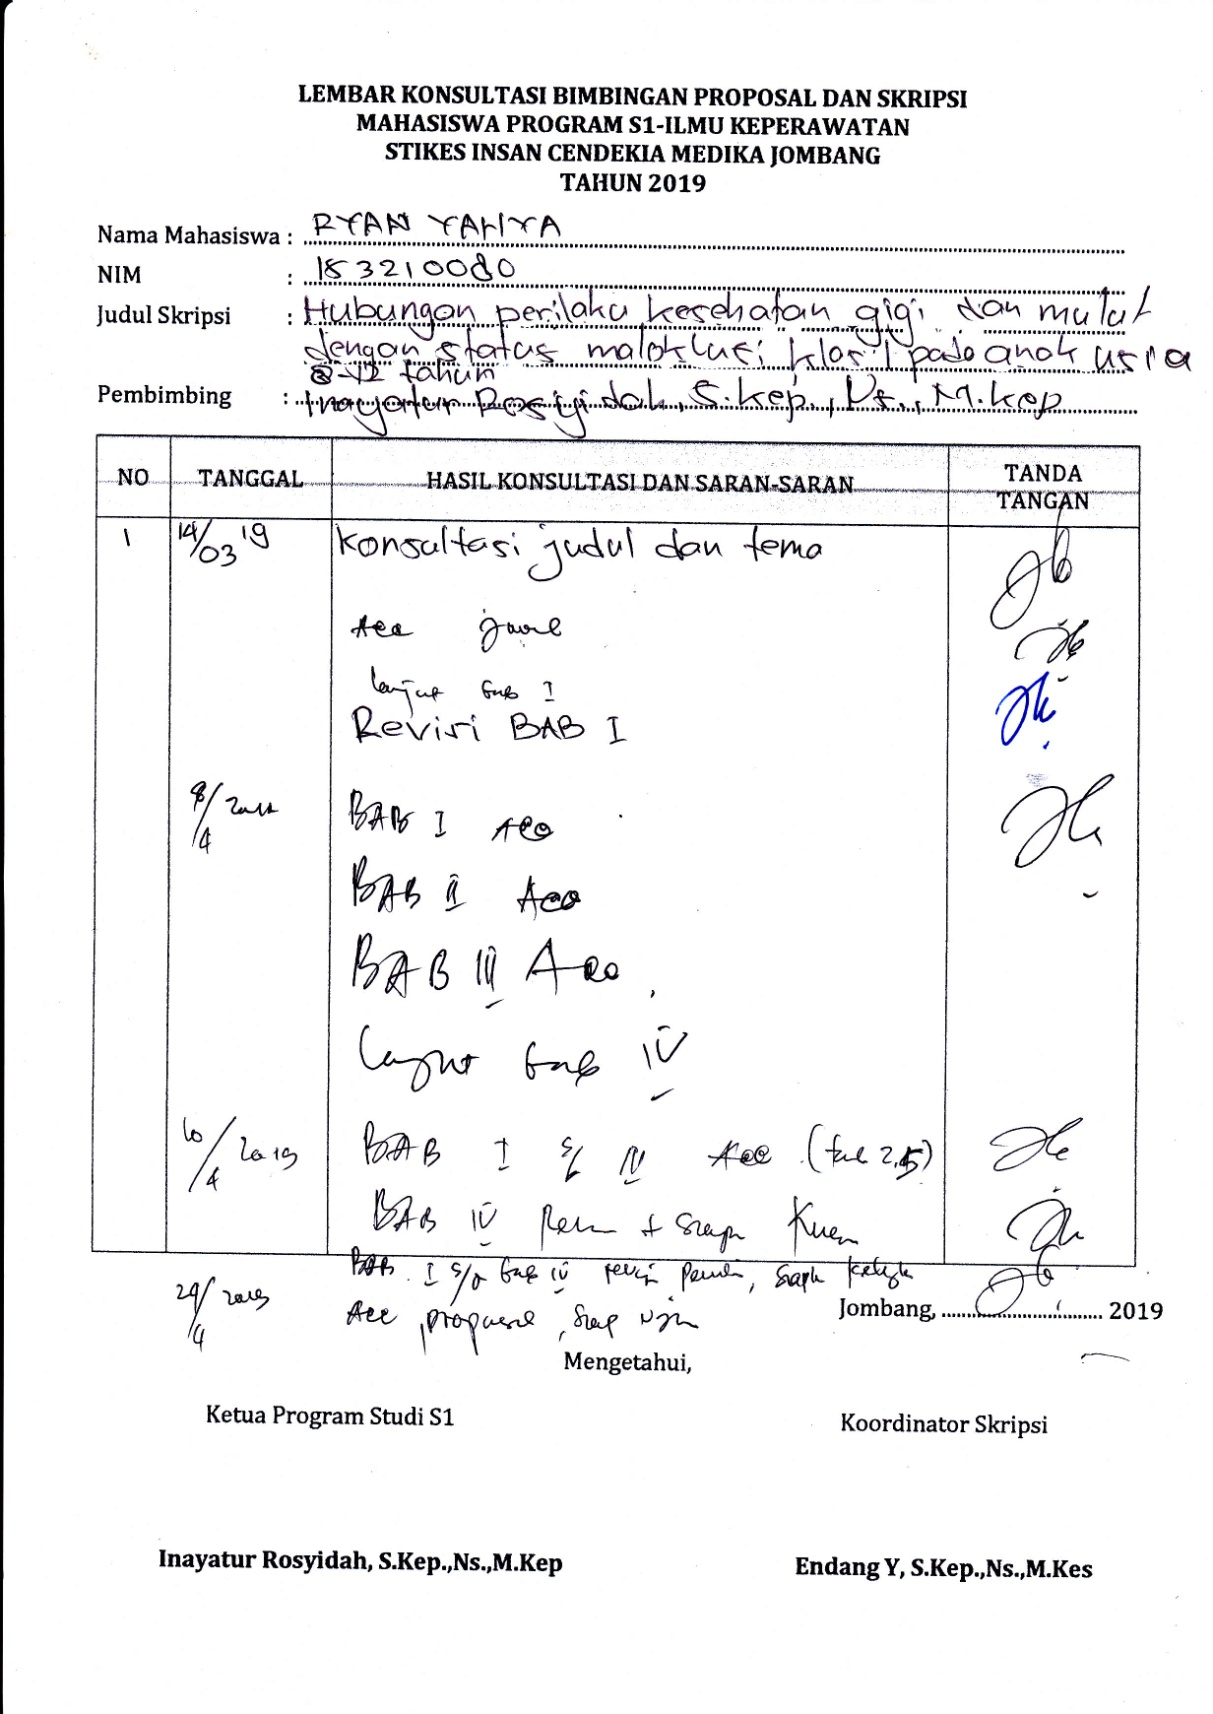 LEMBAR KONSULTASI BIMBINGAN PROPOSAL DAN SKRIPSI
MAHASISWA PROGRAM S1-ILMU KEPERAWATAN
STIKES INSAN CENDEKIA MEDIKA JOMBANG
TAHUN 2019
Nama Mahasiswa : RYAN YAHYA
NIM : 183210080
Judul Skripsi : Hubungan perilaku kesehatan gigi dan mulut
dengan status maloklusi klas 1 pada anak usia
8-12 tahun
Pembimbing : Inayatur Rosyidah, S.kep., Ns., M.kep
NO TANGGAL HASIL KONSULTASI DAN SARAN-SARAN TANDA TANGAN
1 14/03 19 Konsultasi judul dan tema
Acc judul
lanjut bab I
Revisi BAB I
8/4 BAB I Acc
BAB II Acc
BAB III Acc
lanjut bab IV
10/4 2019 BAB I s/d IV Acc
BAB IV + siap
BAB I s/d bab IV revisi
29/4 2019 Acc proposal, siap ujian
Jombang, 2019
Mengetahui,
Ketua Program Studi S1 Koordinator Skripsi
Inayatur Rosyidah, S.Kep.,Ns.,M.Kep Endang Y, S.Kep.,Ns.,M.Kes